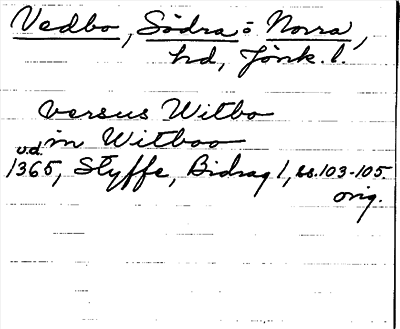 Vedbo, Södra o Norra,
hd, Jönk. l.
versus Witbo
in Witboo
u.d.
1365, Styffe, Bidrag 1, ss. 103-105.
orig.